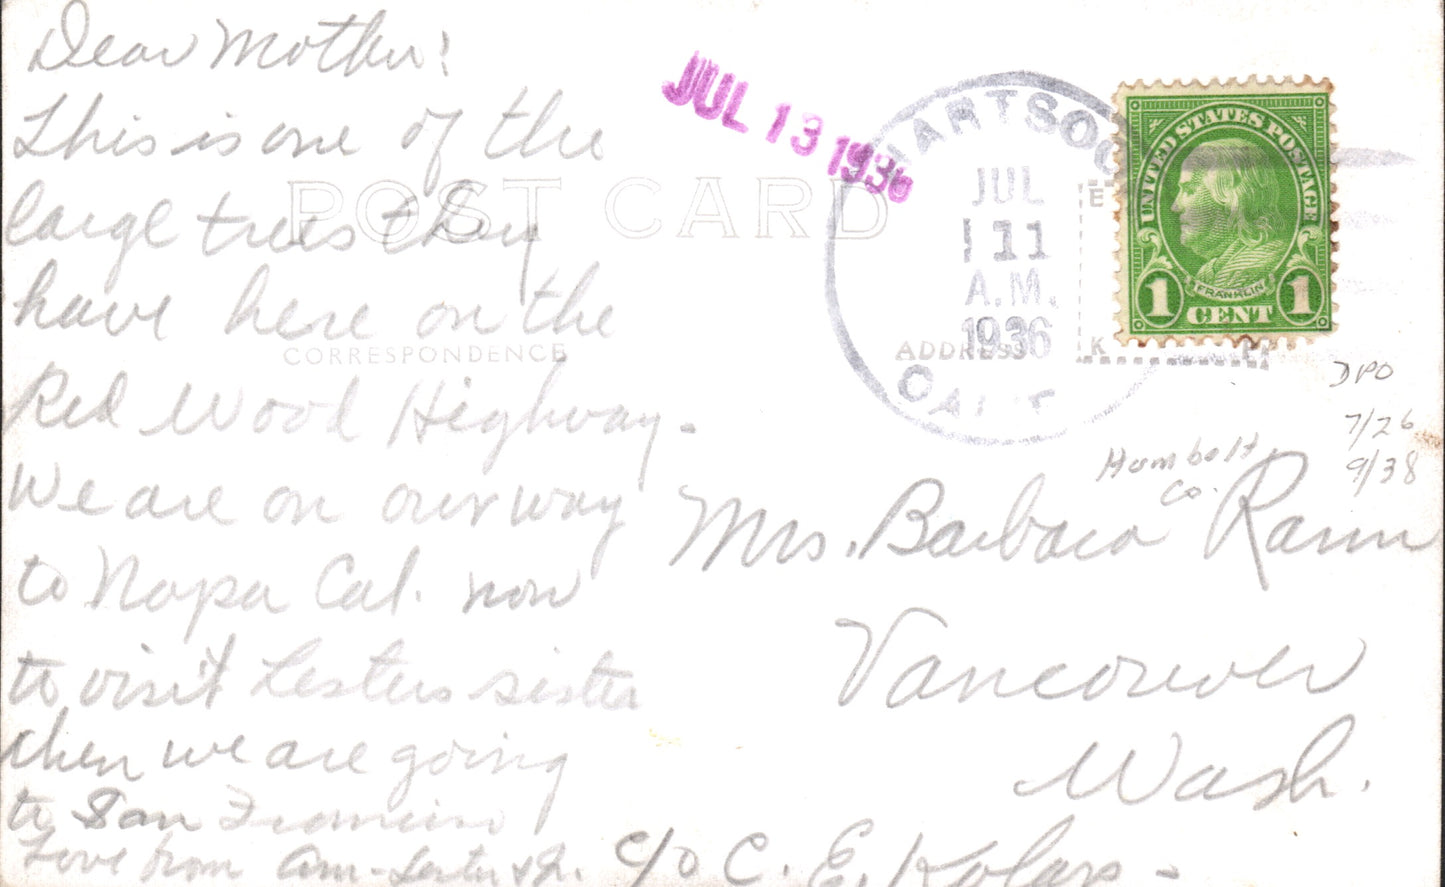 Dear Mother!
This is one of the
large trees they
have here on the
Red Wood Highway.
We are on our way
to Napa Cal. now
to visit Lesters sister
then we are going
to San Francisco
Love from
POST CARD
CORRESPONDENCE
ADDRESS
JUL 13 1936
JUL
11
A.M.
1936
CALIF
UNITED STATES POSTAGE
FRANKLIN
1 CENT 1
DPO
7/26
9/38
Humbolt
Co.
Mrs. Barbara
Vancouver
Wash.
c/o C. E.